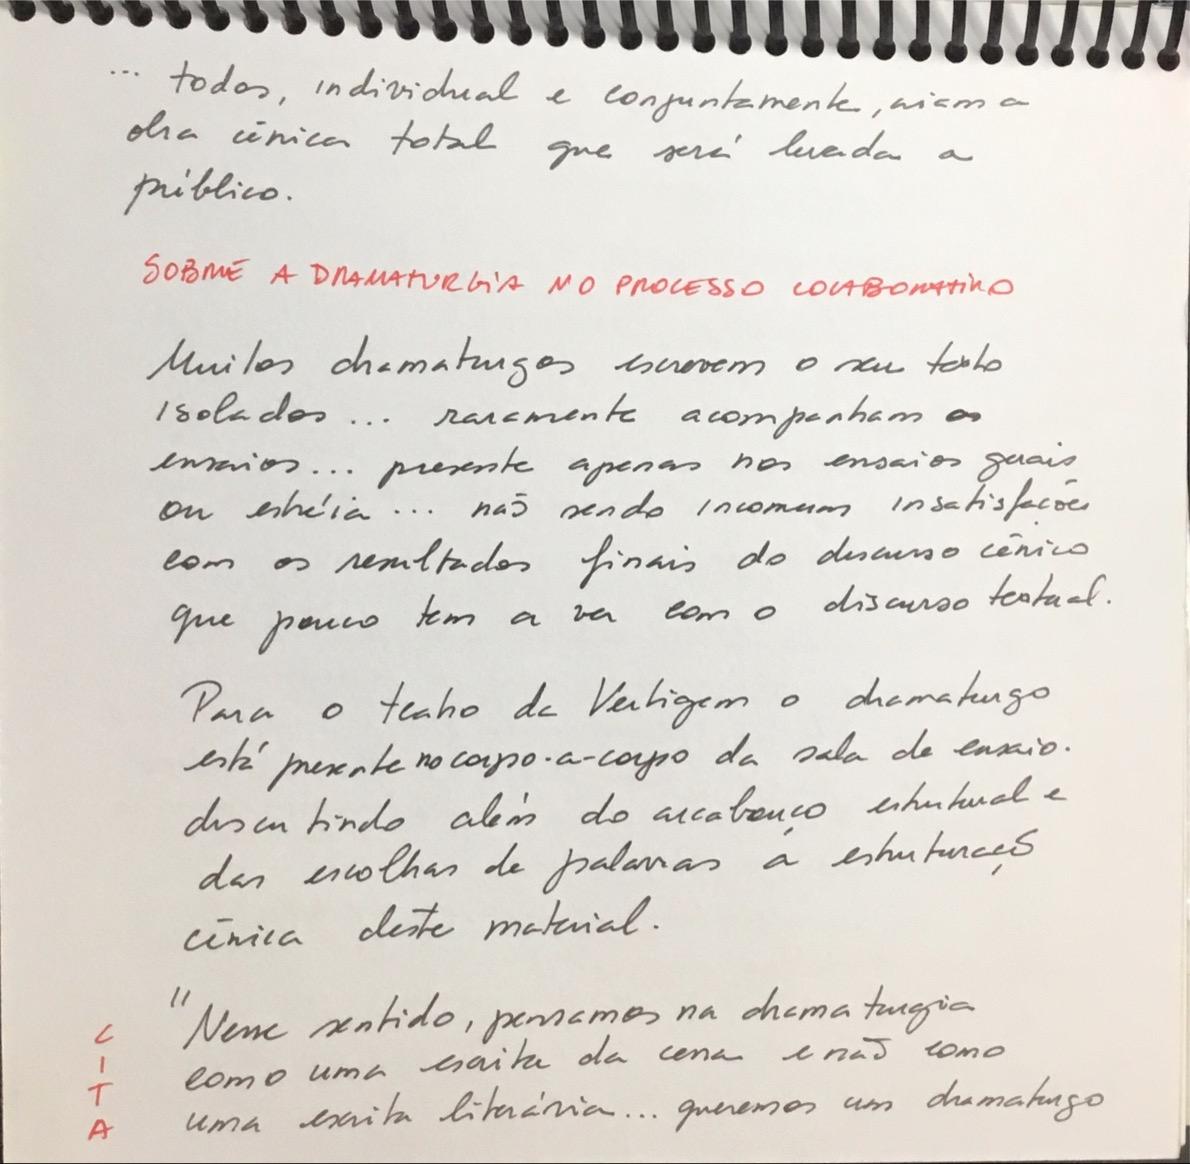 ... todos, individual e conjuntamente, criam a
obra cênica total que será levada a
público.
SOBRE A DRAMATURGIA NO PROCESSO COLABORATIVO
Muitos dramaturgos escrevem o seu texto
isolados... raramente acompanham os
ensaios... presente apenas nos ensaios gerais
ou estréia... não sendo incomum insatisfações
com os resultados finais do discurso cênico
que pouco tem a ver com o discurso textual.
Para o teatro da Vertigem o dramaturgo
está presente no corpo-a-corpo da sala de ensaio.
discutindo além do arcabouço estrutural e
das escolhas de palavras a estruturação
cênica deste material.
"Nesse sentido, pensamos na dramaturgia
como uma escrita da cena e não como
uma escrita literária... queremos um dramaturgo
CITA